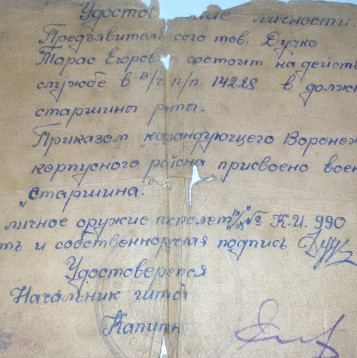 Удостов ние личности
Предъявитель сего тов. Дучко
Тарас Егоров состоит на действ
службе в В/ч п/п 14228 в долж
старшины роты.
Приказом командующего Воронеж
корпусного района присвоено воен
"старшина.
личное оружие пистолет № К.И. 990
ть и собственноручная подпись
Удостоверется
Начальник штаб
Капитан